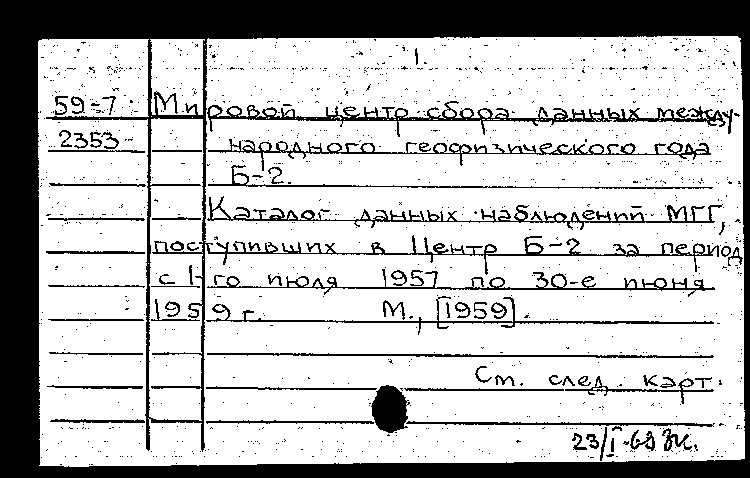 1.
59-7 Мировой центр сбора данных между-
2353 народного геофизического года
Б-2.
Каталог данных наблюдений МГГ,
поступивших в Центр Б-2 за период
с 1-го июля 1957 по 30-е июня
1959 г. М., [1959].
См. след. карт.
23/I-69